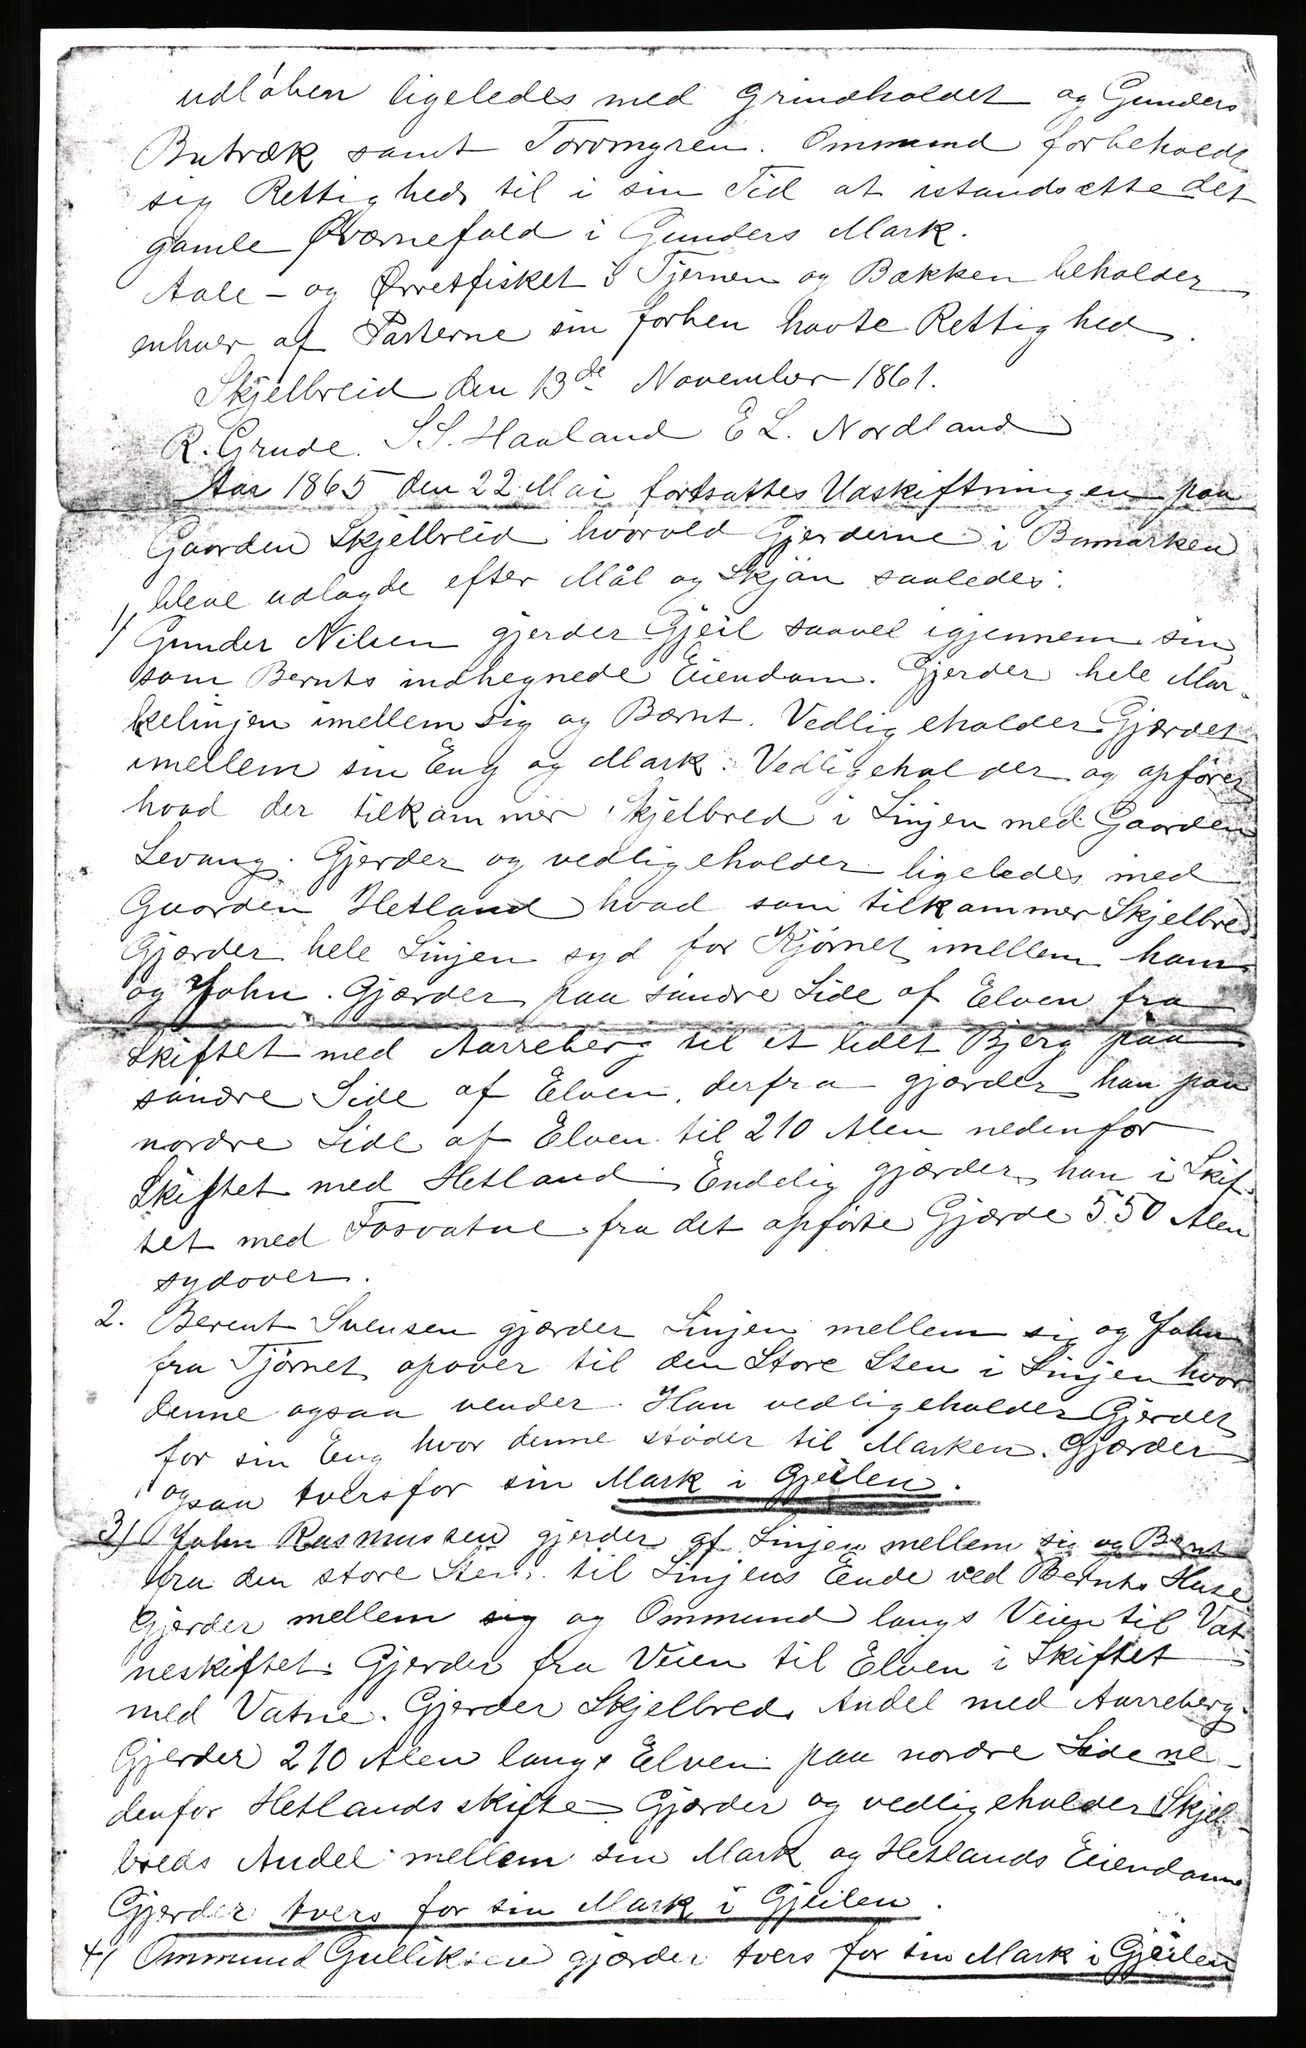 udløben ligeledes med Grindholdet og Gunders
Butræk samt Torvmyren. Ommund forbeholdt
sig Rettighed til i sin Tid at istandsætte det
gamle Qværnefald i Gunders Mark.
Aale- og Ørretfisket i Tjernen og Bækken beholder
enhver af Parterne sin forhen havte Rettighed.
Skjelbreid den 13de November 1861.
R. Grude. S S. Haaland E L. Nordland
Aar 1865 den 22 Mai fortsattes Udskiftningen paa
Gaarden Skjelbreid hvorved Gjerderne i Bumarken
bleve udlagde efter Mål og Skjøn saaledes:
1/ Gunder Nilsen gjerder Gjeil saavel igjennem sin
som Bernts indhegnede Eiendom. Gjerder hele Mar-
kelinjen imellem sig og Bernt. Vedligeholder Gjærdet
imellem sin Eng og Mark. Vedligeholder og opfører
hvad der tilkommer Skjelbred i Linjen med Gaarden
Levang. Gjerder og vedligeholder ligeledes med
Gaarden Hetland hvad som tilkommer Skjelbred
Gjærder hele Linjen syd for Kjørnet imellem ham
og John. Gjærder paa søndre Side af Elven fra
Skiftet med Aarreberg til et lidet Bjerg paa
søndre Side af Elven, derfra gjærder han paa
nordre Side af Elven til 210 Alen nedenfor
Skiftet med Hetland. Endelig gjærder han i Skif-
tet med Fosvatne fra det opførte Gjærde 550 Alen
sydover.
2. Berent Svensen gjærder Linjen mellem sig og John
fra Tjørnet opover til den Store Sten i Linjen hvor
denne ogsaa vender. Han vedligeholder Gjerdet
for sin Eng hvor denne støder til Marken. Gjærder
ogsaa tversfor sin Mark i Gjeilen.
3) John Rasmussen gjerder af Linjen mellem sig og Bernt
fra den store Sten til Linjens Ende ved Bernts Huse
Gjerder mellem sig og Ommund langs Veien til Vat-
neskiftet. Gjerder fra Veien til Elven i Skiftet
med Vatne. Gjerder Skjelbreds Andel med Aarreberg.
Gjerder 210 Alen langs Elven paa nordre Side ne-
denfor Hetlandsskifte Gjærder og vedligeholder Skjel-
breds Andel mellem sin Mark og Hetlands Eiendom
Gjerder tvers for sin Mark i Gjeilen.
4/ Ommund Gulliksen gjærder tvers for sin Mark i Gjeilen